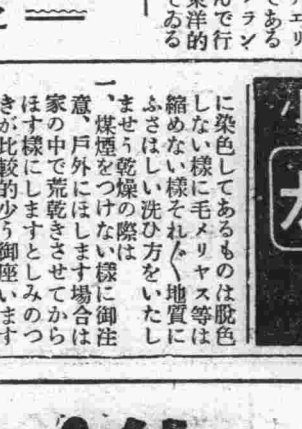 エリ
である
ラン
んで行
東洋的
てゐる
に染色してあるものは脱色
しない様に毛メリヤス等は
縮めない様それ〴〵地質に
ふさはしい洗ひ方をいたし
ませう乾燥の際は
一、煤煙をつけない様に御注
意、戸外にほします場合は
家の中で荒乾きさせてから
ほす様にしますとしみのつ
きが比較的少う御座います